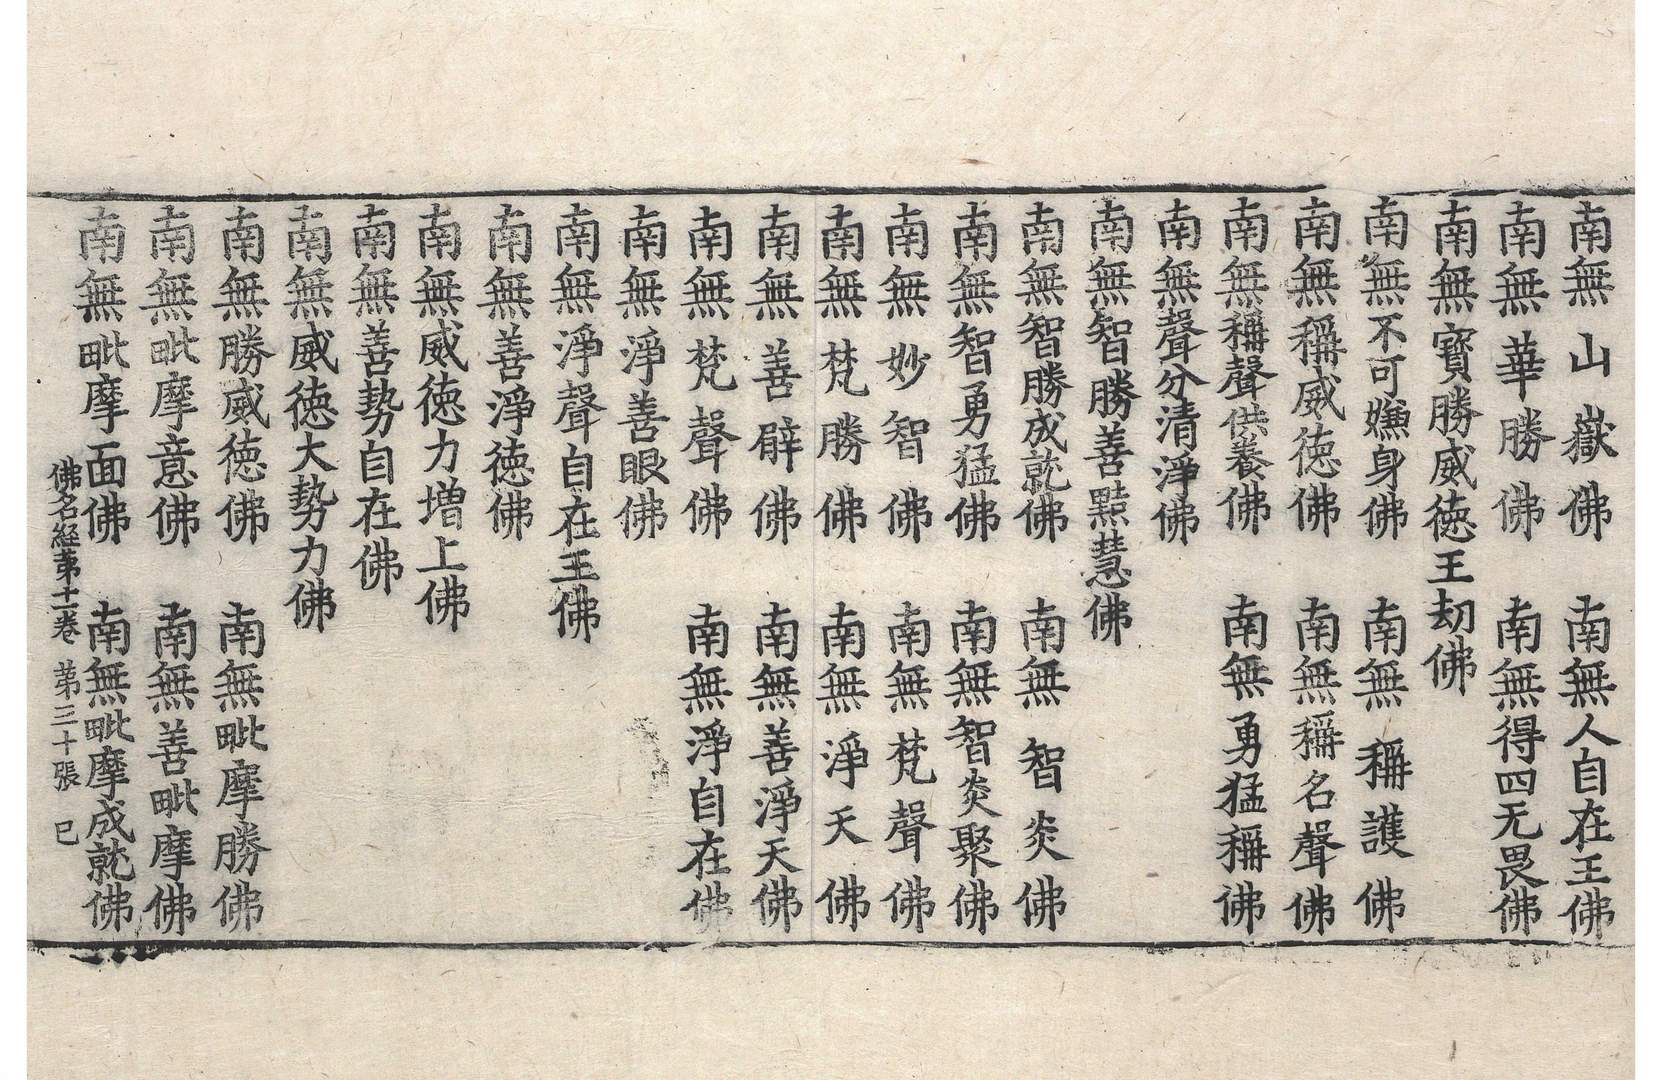 南無山嶽佛　南無人自在王佛
南無華勝佛　南無得四无畏佛
南無寶勝威徳王刧佛
南無不可嫌身佛　南無稱護佛
南無稱威徳佛　南無稱名聲佛
南無稱聲供養佛　南無勇猛稱佛
南無聲分清淨佛
南無智勝善黠慧佛
南無智勝成就佛　南無智炎佛
南無智勇猛佛　南無智炎聚佛
南無妙智佛　南無梵聲佛
南無梵勝佛　南無淨天佛
南無善臂佛　南無善淨天佛
南無梵聲佛　南無淨自在佛
南無淨善眼佛
南無淨聲自在王佛
南無善淨徳佛
南無威徳力増上佛
南無善勢自在佛
南無威徳大勢力佛
南無勝威徳佛　南無毗摩勝佛
南無毗摩意佛　南無善毗摩佛
南無毗摩面佛　南無毗摩成就佛
佛名經苐十一卷　苐三十張　巳